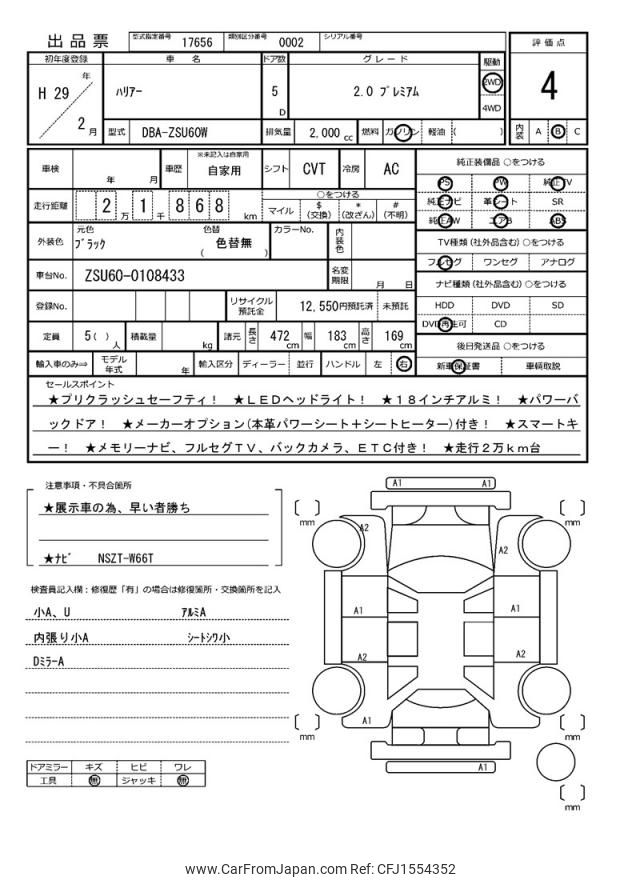 出品票 型式指定番号 17656 類別区分番号 0002 シリアル番号
評価点
4
内装 A B C
初年度登録 車名 ドア数 グレード 駆動
H 29 年 2 月
ハリアー 5 D 2.0 プレミアム 2WD 4WD
型式 DBA-ZSU60W 排気量 2,000 cc 燃料 ガソリン 軽油 ( )
車検 年 月 車歴 ※未記入は自家用 自家用 シフト CVT 冷房 AC
走行距離 2 万 1 千 8 6 8 km
○をつける
マイル $(交換) *(改ざん) #(不明)
外装色 元色 ブラック 色替 ( 色替無 ) カラーNo. 内装色
車台No. ZSU60-0108433 名変期限 月 日
登録No. リサイクル預託金 12,550円預託済 未預託
定員 5( ) 人 積載量 kg 諸元 長さ 472 cm 幅 183 cm 高さ 169 cm
輸入車のみ⇒ モデル年式 年 輸入区分 ディーラー 並行 ハンドル 左 右
純正装備品 ○をつける
PS PW 純正TV
純正ナビ 革シート SR
純正AW エアB ABS
TV種類(社外品含む)○をつける
フルセグ ワンセグ アナログ
ナビ種類(社外品含む)○をつける
HDD DVD SD
DVD再生可 CD
後日発送品 ○をつける
新車保証書 車輌取説
セールスポイント
★プリクラッシュセーフティ! ★LEDヘッドライト! ★18インチアルミ! ★パワーバ
ックドア! ★メーカーオプション(本革パワーシート+シートヒーター)付き! ★スマートキ
ー! ★メモリーナビ、フルセグTV、バックカメラ、ETC付き! ★走行2万km台
注意事項・不具合箇所
★展示車の為、早い者勝ち
★ナビ NSZT-W66T
検査員記入欄:修復歴「有」の場合は修復箇所・交換箇所を記入
小A、U アルミA
内張り小A シートシワ小
DミラーA
ドアミラー キズ ヒビ ワレ
工具 無 ジャッキ 無
A1 A1
mm mm
A2 A2
A1 A1
A2 A2
A1
mm mm
A1
mm
www.CarFromJapan.com Ref: CFJ1554352